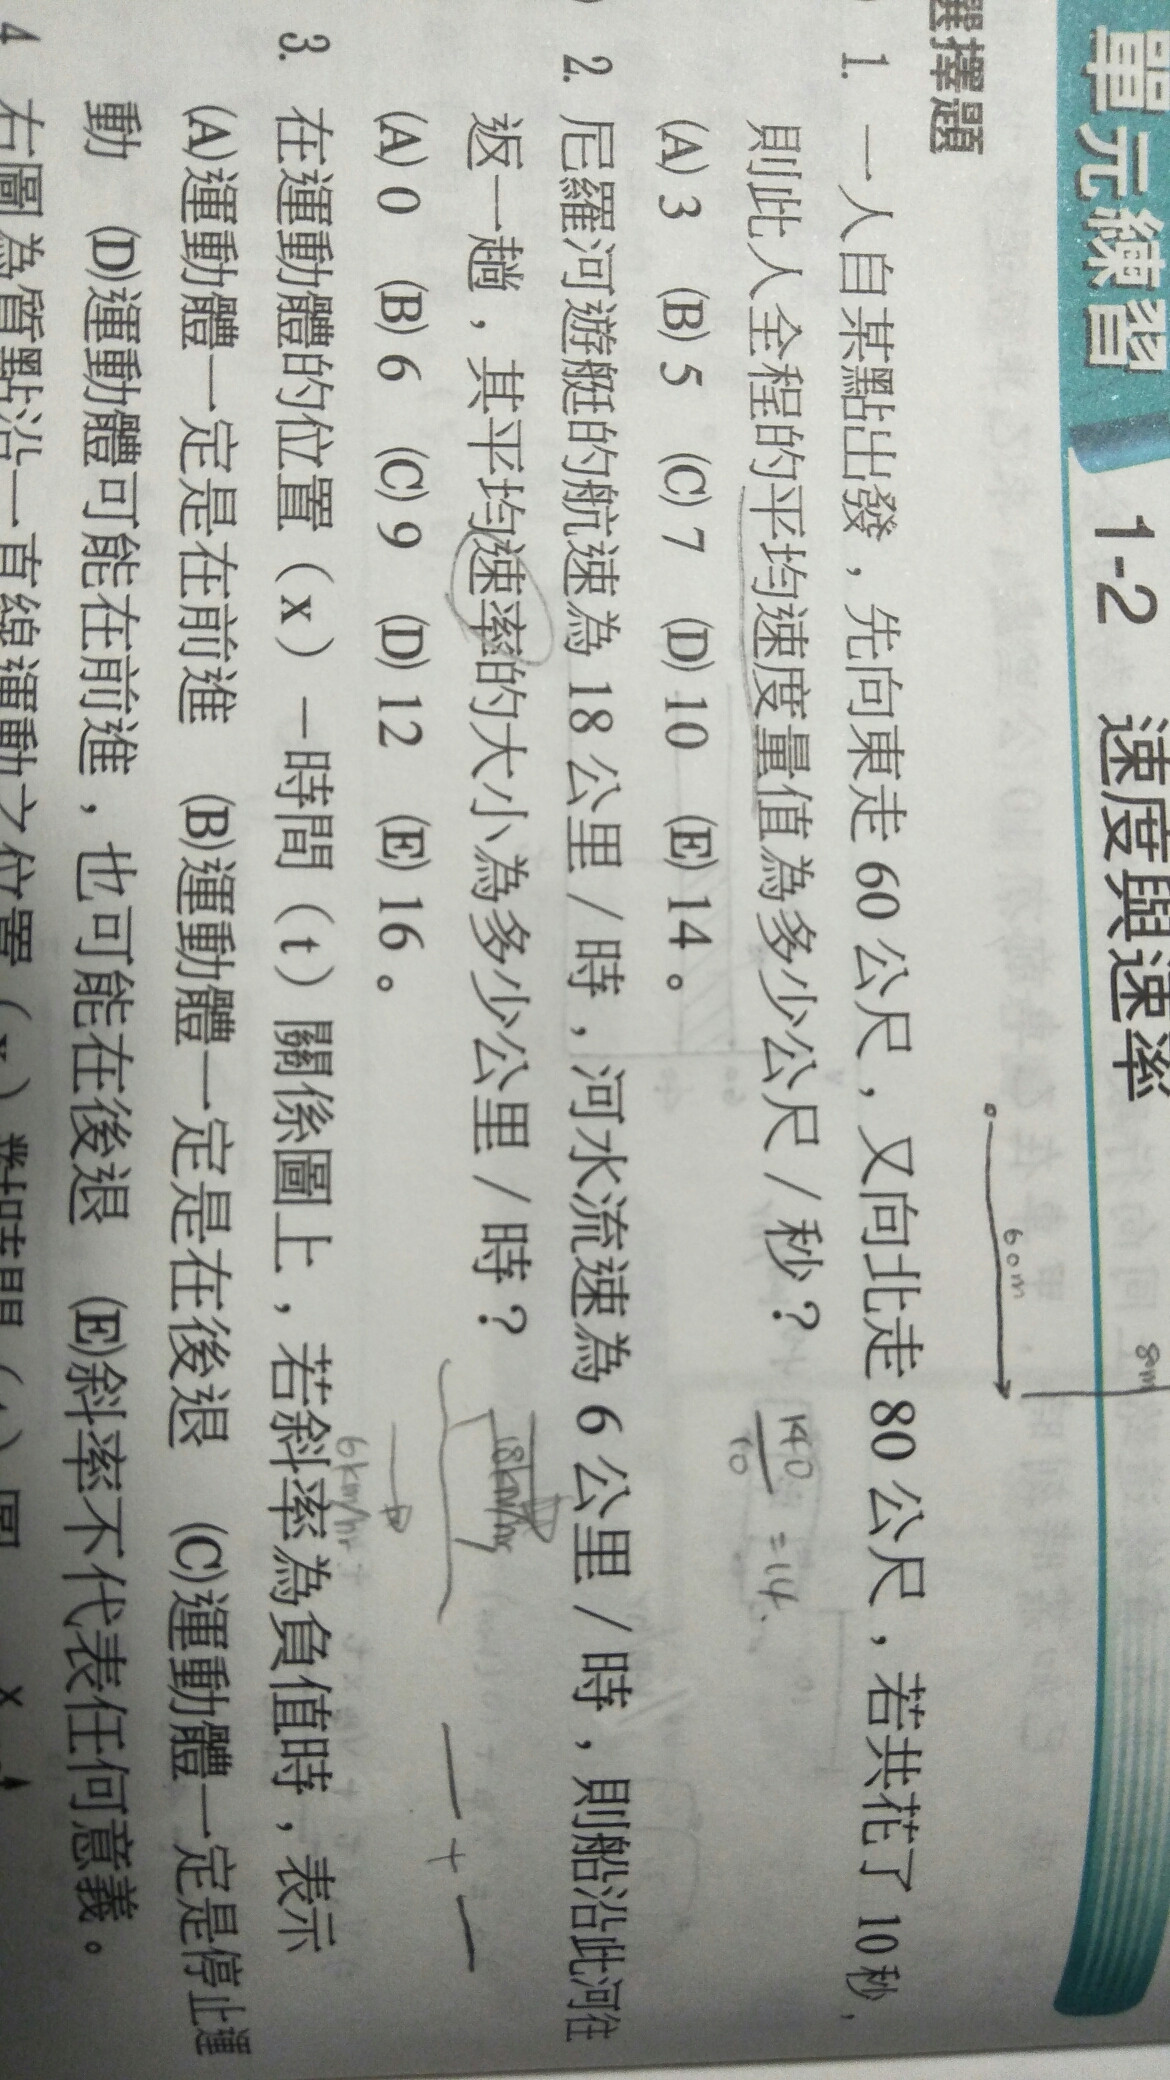 單元練習 1-2 速度與速率
選擇題
60m
80m
1. 一人自某點出發，先向東走 60 公尺，又向北走 80 公尺，若共花了 10 秒，
則此人全程的平均速度量值為多少公尺／秒？
(A) 3 (B) 5 (C) 7 (D) 10 (E) 14。
140/10 = 14.
2. 尼羅河遊艇的航速為 18 公里／時，河水流速為 6 公里／時，則船沿此河往
返一趟，其平均速率的大小為多少公里／時？
(A) 0 (B) 6 (C) 9 (D) 12 (E) 16。
18km/hr
6km/hr
+
3. 在運動體的位置（x）－時間（t）關係圖上，若斜率為負值時，表示
(A)運動體一定是在前進 (B)運動體一定是在後退 (C)運動體一定是停止運
動 (D)運動體可能在前進，也可能在後退 (E)斜率不代表任何意義。
4 右圖為質點沿一直線運動之位置（x）對時間（t）圖
x